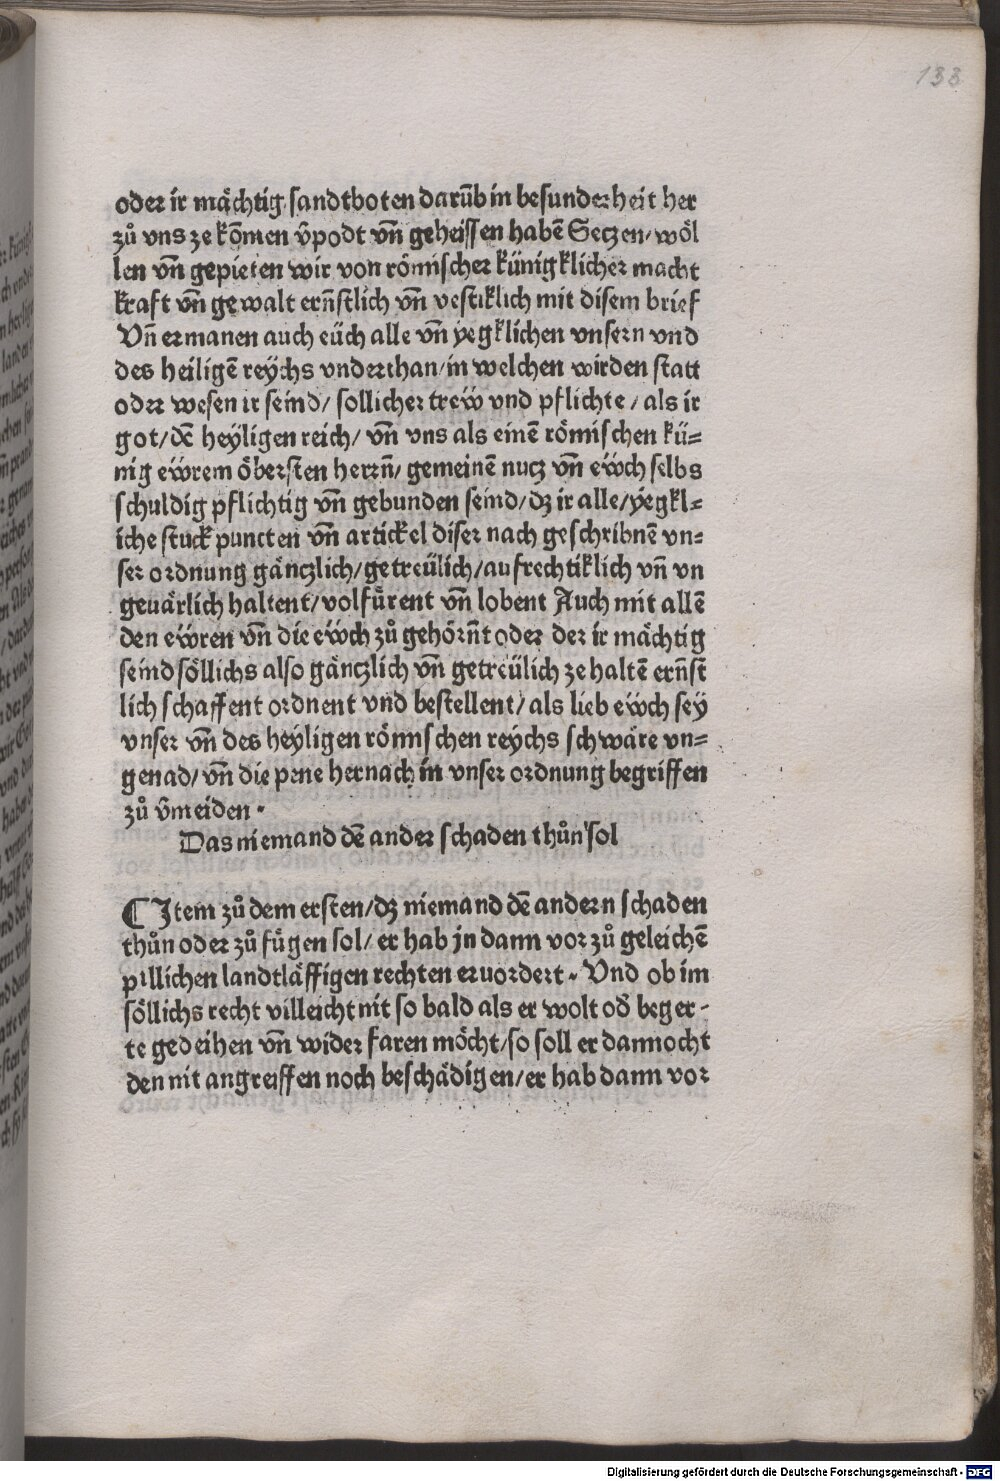 133
oder ir mächtig sandtboten darūb in besunderheit her
zů vns ze kōmen v̄podt vn̄ geheissen habē Setzen/ wöl
len vn̄ gepieten wir von römischer künigklicher macht
kraft vn̄ gewalt ern̄stlich vn̄ vestiklich mit disem brief
Vn̄ ermanen auch eüch alle vn̄ yegklichen vnsern vnd
des heiligē reychs vnderthan/ in welchen wirden statt
oder wesen ir seind/ sollicher trew̎ vnd pflichte/ als ir
got/ dē heyligen reich/ vn̄ vns als einē römischen kü=
nig ew̎rem öbersten herrn̄/ gemeinē nutz vn̄ ew̎ch selbs
schuldig pflichtig vn̄ gebunden seind/ dz ir alle/ yegkl=
iche stuck puncten vn̄ artickel diser nach geschribnē vn=
ser ordnung gäntzlich/ getreülich/ aufrechtiklich vn̄ vn
geuärlich haltent/ volfürent vn̄ lobent Auch mit allē
den ew̎ren vn̄ die ew̎ch zů gehörn̄t oder der ir mächtig
seind söllichs also gäntzlich vn̄ getreülich ze haltē ern̄st
lich schaffent ordnent vnd bestellent/ als lieb ew̎ch sey
vnser vn̄ des heyligen römschen reychs schwäre vn=
genad/ vn̄ die pene hernach in vnser ordnung begriffen
zů v̄meiden.
Das niemand dē ander schaden thůn sol
¶ Item zů dem ersten/ dz niemand dē andern schaden
thůn oder zů fügen sol/ er hab jn dann vor zů geleichē
pillichen landtläffigen rechten eruordert. Vnd ob im
söllichs recht villeicht nit so bald als er wolt od̄ beger-
te gedeihen vn̄ widerfaren möcht/ so soll er dannocht
den nit angreiffen noch beschädigen/ er hab dann vor
Digitalisierung gefördert durch die Deutsche Forschungsgemeinschaft - DFG